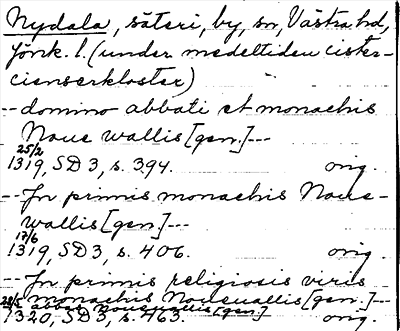 Nydala, säteri, by, sn, Västra hd,
Jönk. l. (under medeltiden cister-
cienserkloster)
-- domino abbati et monachis
Noue wallis [gen.] ---
25/2
1319, SD 3, s. 394. orig.
-- In primis monachis Noue-
wallis [gen] ---
17/6
1319, SD 3, s. 406. orig.
-- In primis religiosis viris
monachis Noueuallis [gen.] ---
abbati Nouewallis [gen]
1320, SD 3, s. 463. orig.